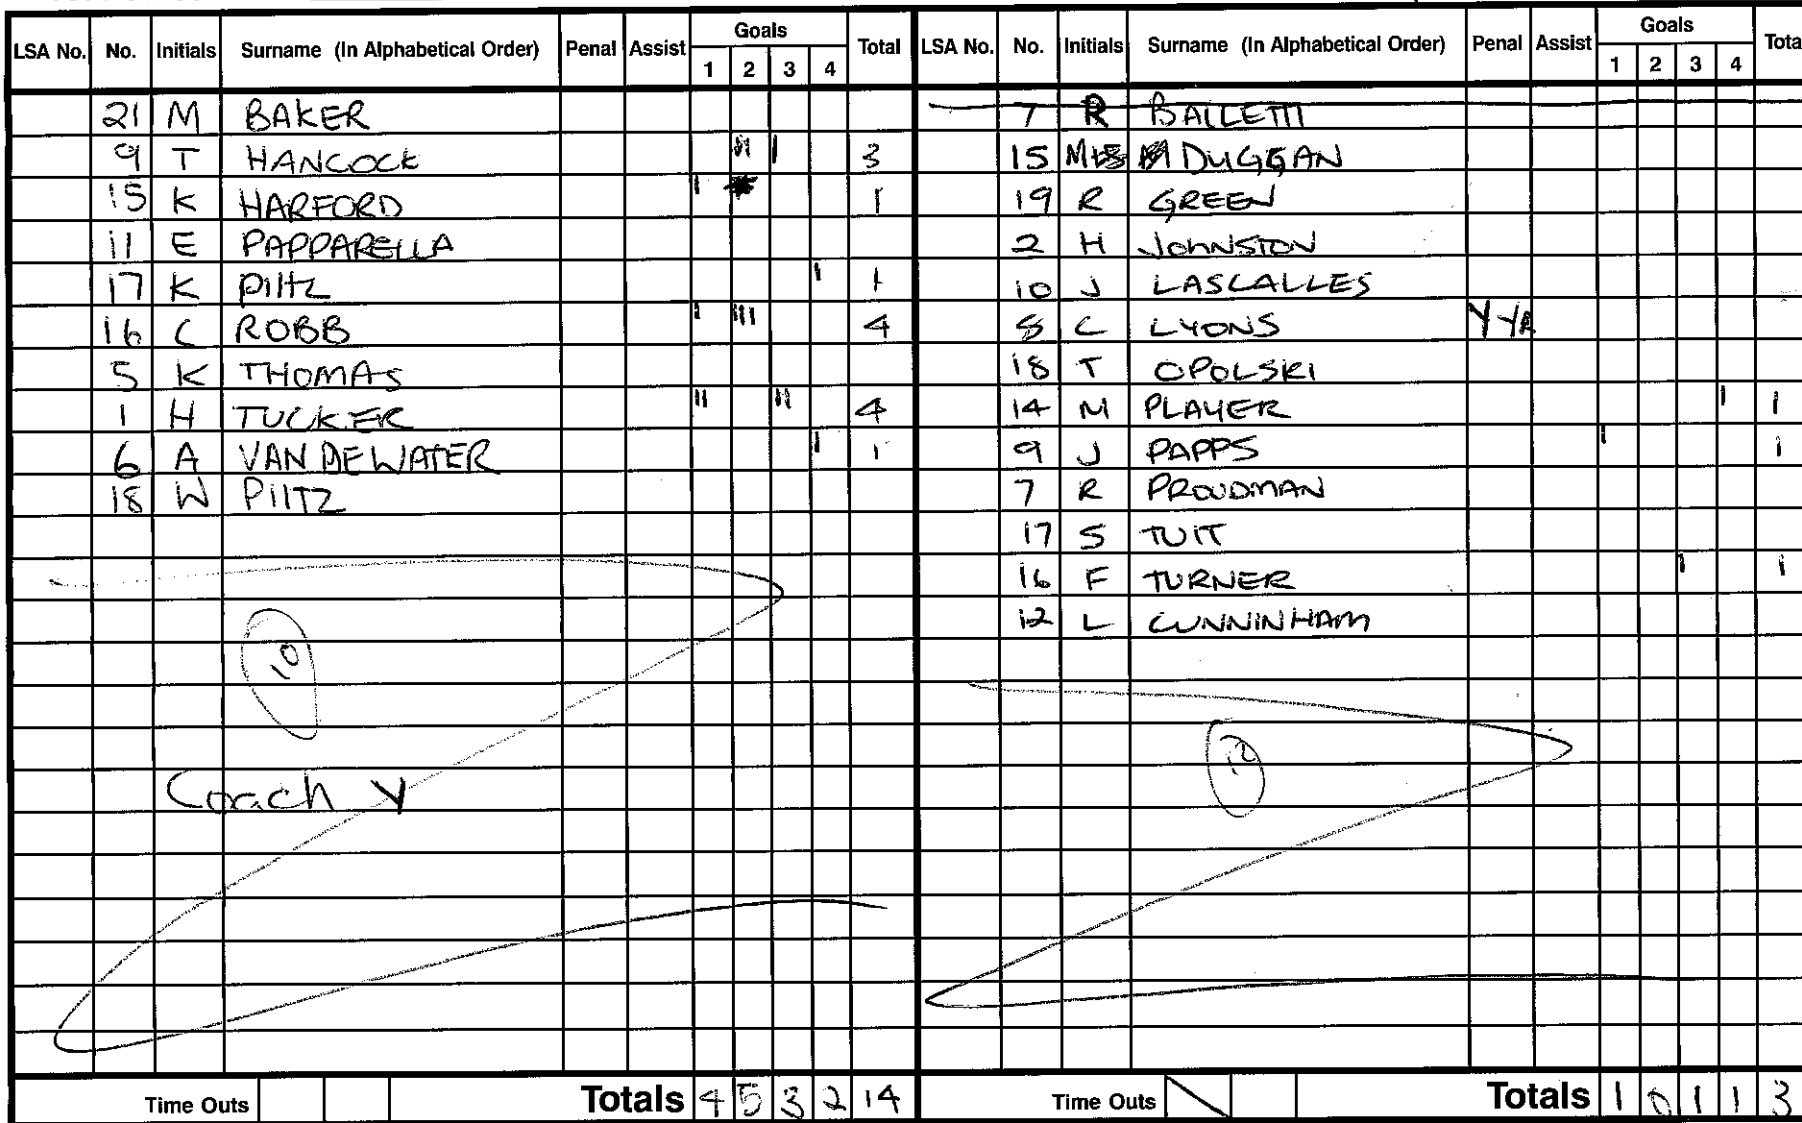 LSA No. No. Initials Surname (In Alphabetical Order) Penal Assist Goals 1 2 3 4 Total
21 M BAKER
9 T HANCOCK II I 3
15 K HARFORD I 1
11 E PAPPARELLA
17 K PILTZ I 1
16 C ROBB I III 4
5 K THOMAS
1 H TUCKER II II 4
6 A VAN DE WATER I 1
18 W PIITZ
10
Coach Y
Time Outs Totals 4 5 3 2 14
LSA No. No. Initials Surname (In Alphabetical Order) Penal Assist Goals 1 2 3 4 Tota
7 R BALLETTI
15 M DUGGAN
19 R GREEN
2 H JOHNSTON
10 J LASCALLES
8 C LYONS Y Y
18 T OPOLSKI
14 M PLAYER I 1
9 J PAPPS I 1
7 R PROUDMAN
17 S TUIT
16 F TURNER I 1
12 L CUNNINHAM
12
Time Outs Totals 1 0 1 1 3